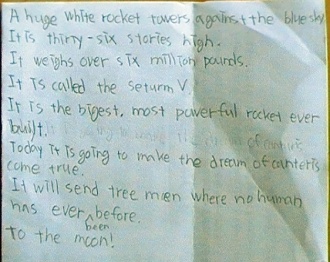 A huge white rocket towers against the blue sky
It is thirty-six stories high.
It weighs over six million pounds.
It is called the seturn V.
It is the bigest, most powerful rocket ever
built.
Today it is going to make the dream of counteris
come true.
It will send tree men where no human
has ever been before.
to the moon!